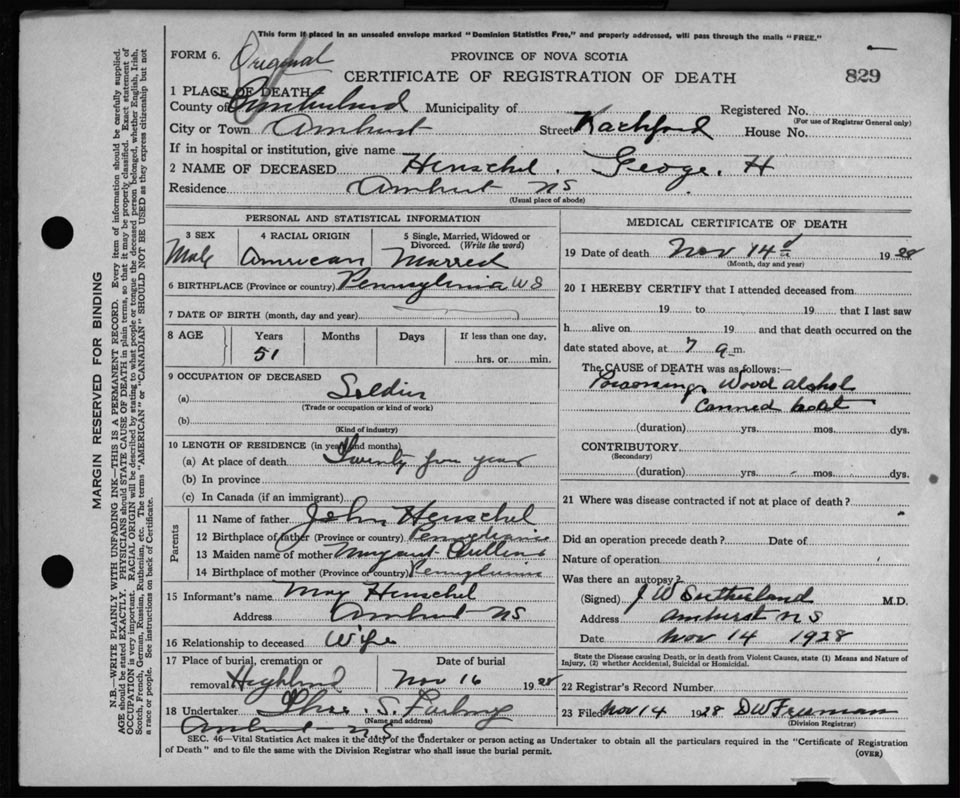 This form if placed in an unsealed envelope marked "Dominion Statistics Free," and properly addressed, will pass through the mails "FREE."
FORM 6. Original PROVINCE OF NOVA SCOTIA
CERTIFICATE OF REGISTRATION OF DEATH 829
1 PLACE OF DEATH
County of Cumberland Municipality of Registered No.
(For use of Registrar General only)
City or Town Amherst Street Ratchford House No.
If in hospital or institution, give name
2 NAME OF DECEASED Henschel, George. H
Residence Amherst NS
(Usual place of abode)
PERSONAL AND STATISTICAL INFORMATION
3 SEX 4 RACIAL ORIGIN 5 Single, Married, Widowed or Divorced. (Write the word)
Male American Married
6 BIRTHPLACE (Province or country) Pennsylvania US
7 DATE OF BIRTH (month, day and year)
8 AGE Years Months Days If less than one day,
51 hrs. or min.
9 OCCUPATION OF DECEASED
(a) Soldier
(Trade or occupation or kind of work)
(b)
(Kind of industry)
10 LENGTH OF RESIDENCE (in years and months)
(a) At place of death Twenty five years
(b) In province
(c) In Canada (if an immigrant)
Parents
11 Name of father John Henschel
12 Birthplace of father (Province or country) Pennsylvania
13 Maiden name of mother Margaret
14 Birthplace of mother (Province or country) Pennsylvania
15 Informant's name May Henschel
Address Amherst NS
16 Relationship to deceased Wife
17 Place of burial, cremation or Date of burial
removal Highland Nov 16 1928
18 Undertaker S.
(Name and address)
Amherst N.S.
MEDICAL CERTIFICATE OF DEATH
19 Date of death Nov 14 1928
(Month, day and year)
20 I HEREBY CERTIFY that I attended deceased from
19 to 19 that I last saw
h alive on 19 and that death occurred on the
date stated above, at 7 a m.
The CAUSE of DEATH was as follows:—
Poisoning, Wood alcohol
Canned heat
(duration) yrs. mos. dys.
CONTRIBUTORY
(Secondary)
(duration) yrs. mos. dys.
21 Where was disease contracted if not at place of death?
Did an operation precede death? Date of
Nature of operation
Was there an autopsy?
(Signed) J W Sutherland M.D.
Address Amherst N S
Date Nov 14 1928
State the Disease causing Death, or in death from Violent Causes, state (1) Means and Nature of
Injury, (2) whether Accidental, Suicidal or Homicidal.
22 Registrar's Record Number
23 Filed Nov 14 1928 D W Freeman
(Division Registrar)
SEC. 46—Vital Statistics Act makes it the duty of the Undertaker or person acting as Undertaker to obtain all the particulars required in the "Certificate of Registration
of Death" and to file the same with the Division Registrar who shall issue the burial permit. (OVER)
MARGIN RESERVED FOR BINDING
N.B.—WRITE PLAINLY WITH UNFADING INK—THIS IS A PERMANENT RECORD. Every item of information should be carefully supplied.
AGE should be stated EXACTLY. PHYSICIANS should STATE CAUSE OF DEATH in plain terms, so that it may be properly classified. Exact statement of
OCCUPATION is very important. RACIAL ORIGIN will be described by stating to what people or tongue the deceased person belonged, whether English, Irish,
Scotch, French, German, Russian, Ruthenian, etc. The terms "AMERICAN" or "CANADIAN" SHOULD NOT BE USED as they express citizenship but not
a race or people. See instructions on back of Certificate.